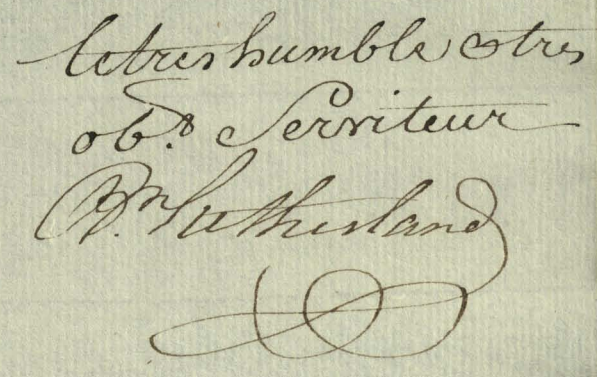 le tres humble & tres
ob.t Serviteur
Wm. Sutherland